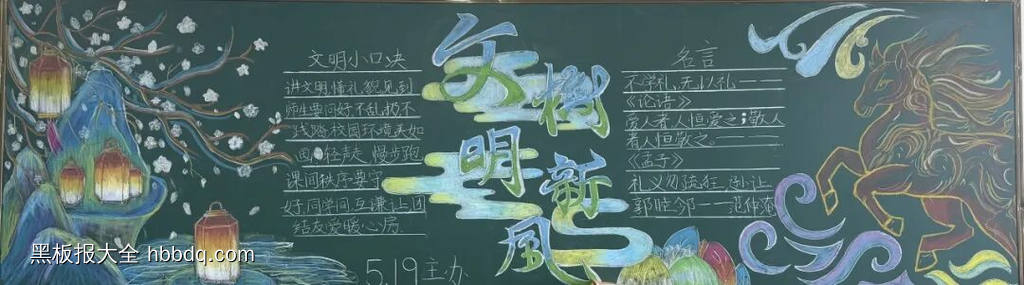 文明小口决
讲文明懂礼貌见到
师生要问好不乱扔不
践踏校园环境美如
画 轻声走 慢步跑
课间秩序要守
好同学间互谦让团
结友爱暖心房
文明
树新風
5.19主办
名言
不学礼,无以礼——
《论语》
爱人者人恒爱之;敬人
者人恒敬之。——
《孟子》
礼义勿疏狂,逊让
敦睦邻——范仲淹
黑板报大全 hbbdq.com